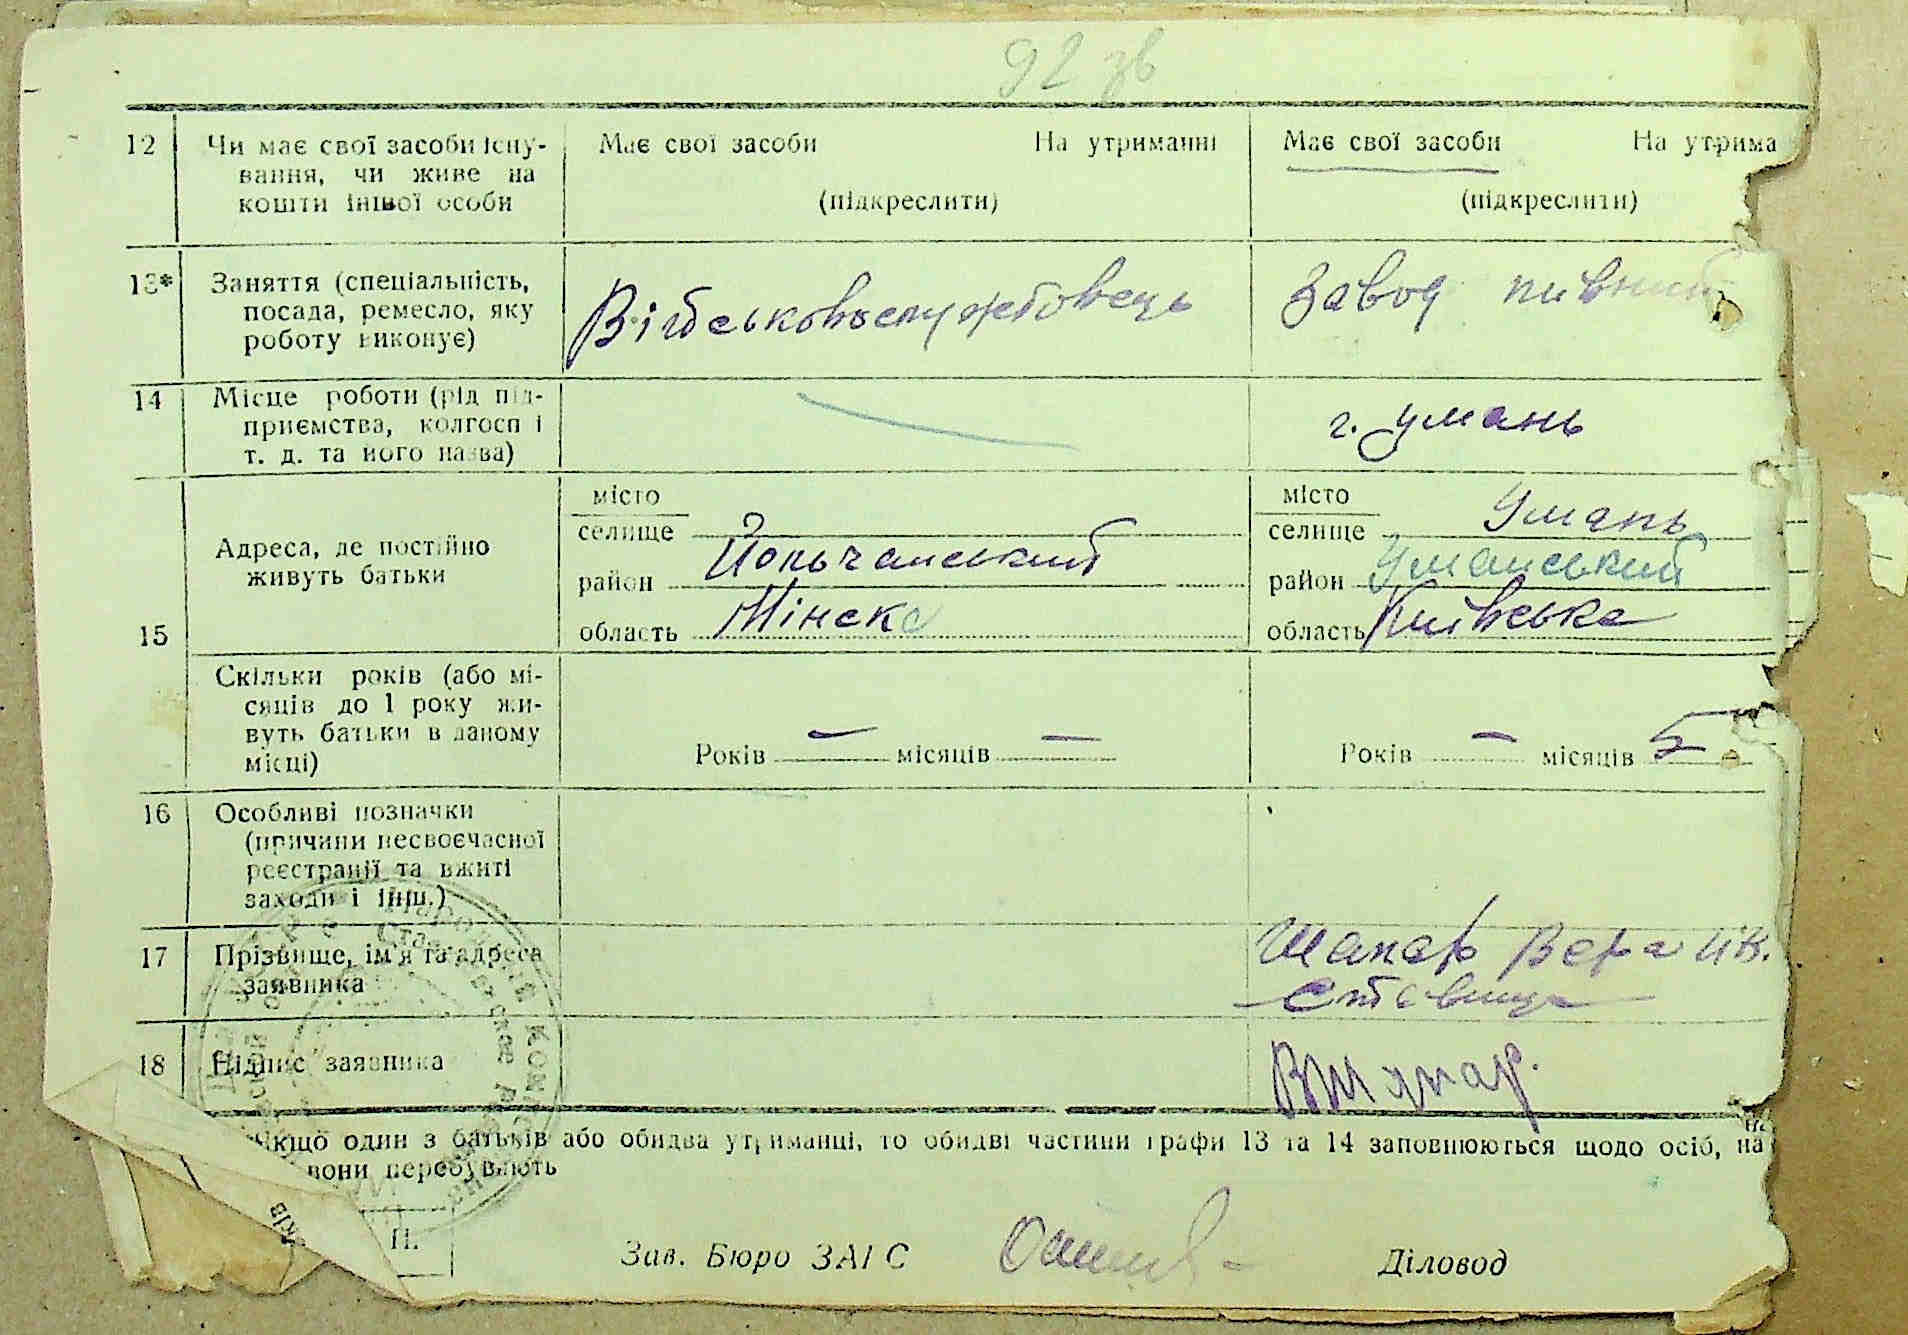 92 зв
12 Чи має свої засоби існу-
вання, чи живе на
кошти іншої особи
Має свої засоби На утриманні
(підкреслити)
Має свої засоби На утрима
(підкреслити)
13* Заняття (спеціальність,
посада, ремесло, яку
роботу виконує)
Військовослужбовець
Завод пивний
14 Місце роботи (рід під-
приємства, колгосп і
т. д. та його назва)
г. Умань
15
Адреса, де постійно
живуть батьки
місто
селище
район
область Мінска
місто
селище Умань
район Уманський
область Київська
Скільки років (або мі-
сяців до 1 року жи-
вуть батьки в даному
місці)
Років – місяців –
Років – місяців 5
16 Особливі позначки
(причини несвоєчасної
реєстрації та вжиті
заходи і інш.)
17 Прізвище, ім'я та адреса
заявника
Шапар Вера Ив.
Ставище
18 Підпис заявника
Якщо один з батьків або обидва утриманці, то обидві частини графи 13 та 14 заповнюються щодо осіб, на
вони перебувають
П.
Зав. Бюро ЗАГС
Діловод